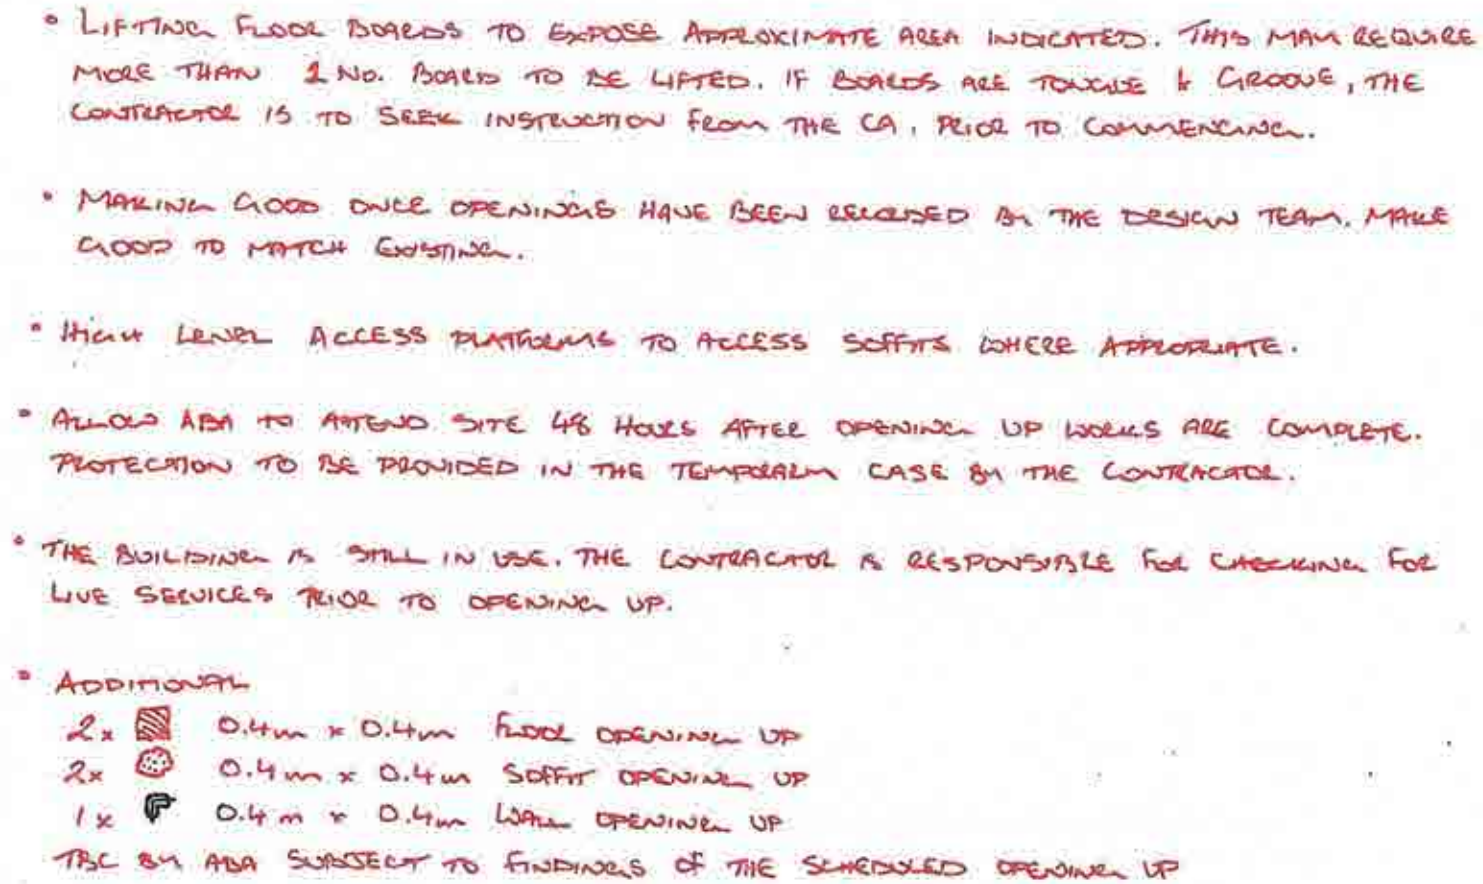 • LIFTING FLOOR BOARDS TO EXPOSE APPROXIMATE AREA INDICATED. THIS MAY REQUIRE
MORE THAN 1 NO. BOARD TO BE LIFTED. IF BOARDS ARE TONGUE & GROOVE, THE
CONTRACTOR IS TO SEEK INSTRUCTION FROM THE CA, PRIOR TO COMMENCING.
• MAKING GOOD ONCE OPENINGS HAVE BEEN RECORDED BY THE DESIGN TEAM. MAKE
GOOD TO MATCH EXISTING.
• HIGH LEVEL ACCESS PLATFORMS TO ACCESS SOFFITS WHERE APPROPRIATE.
• ALLOW ABA TO ATTEND SITE 48 HOURS AFTER OPENING UP WORKS ARE COMPLETE.
PROTECTION TO BE PROVIDED IN THE TEMPORARY CASE BY THE CONTRACTOR.
• THE BUILDING IS STILL IN USE. THE CONTRACTOR IS RESPONSIBLE FOR CHECKING FOR
LIVE SERVICES PRIOR TO OPENING UP.
• ADDITIONAL
2x 0.4m x 0.4m FLOOR OPENING UP
2x 0.4m x 0.4m SOFFIT OPENING UP
1x 0.4m x 0.4m WALL OPENING UP
TBC BY ABA SUBJECT TO FINDINGS OF THE SCHEDULED OPENING UP